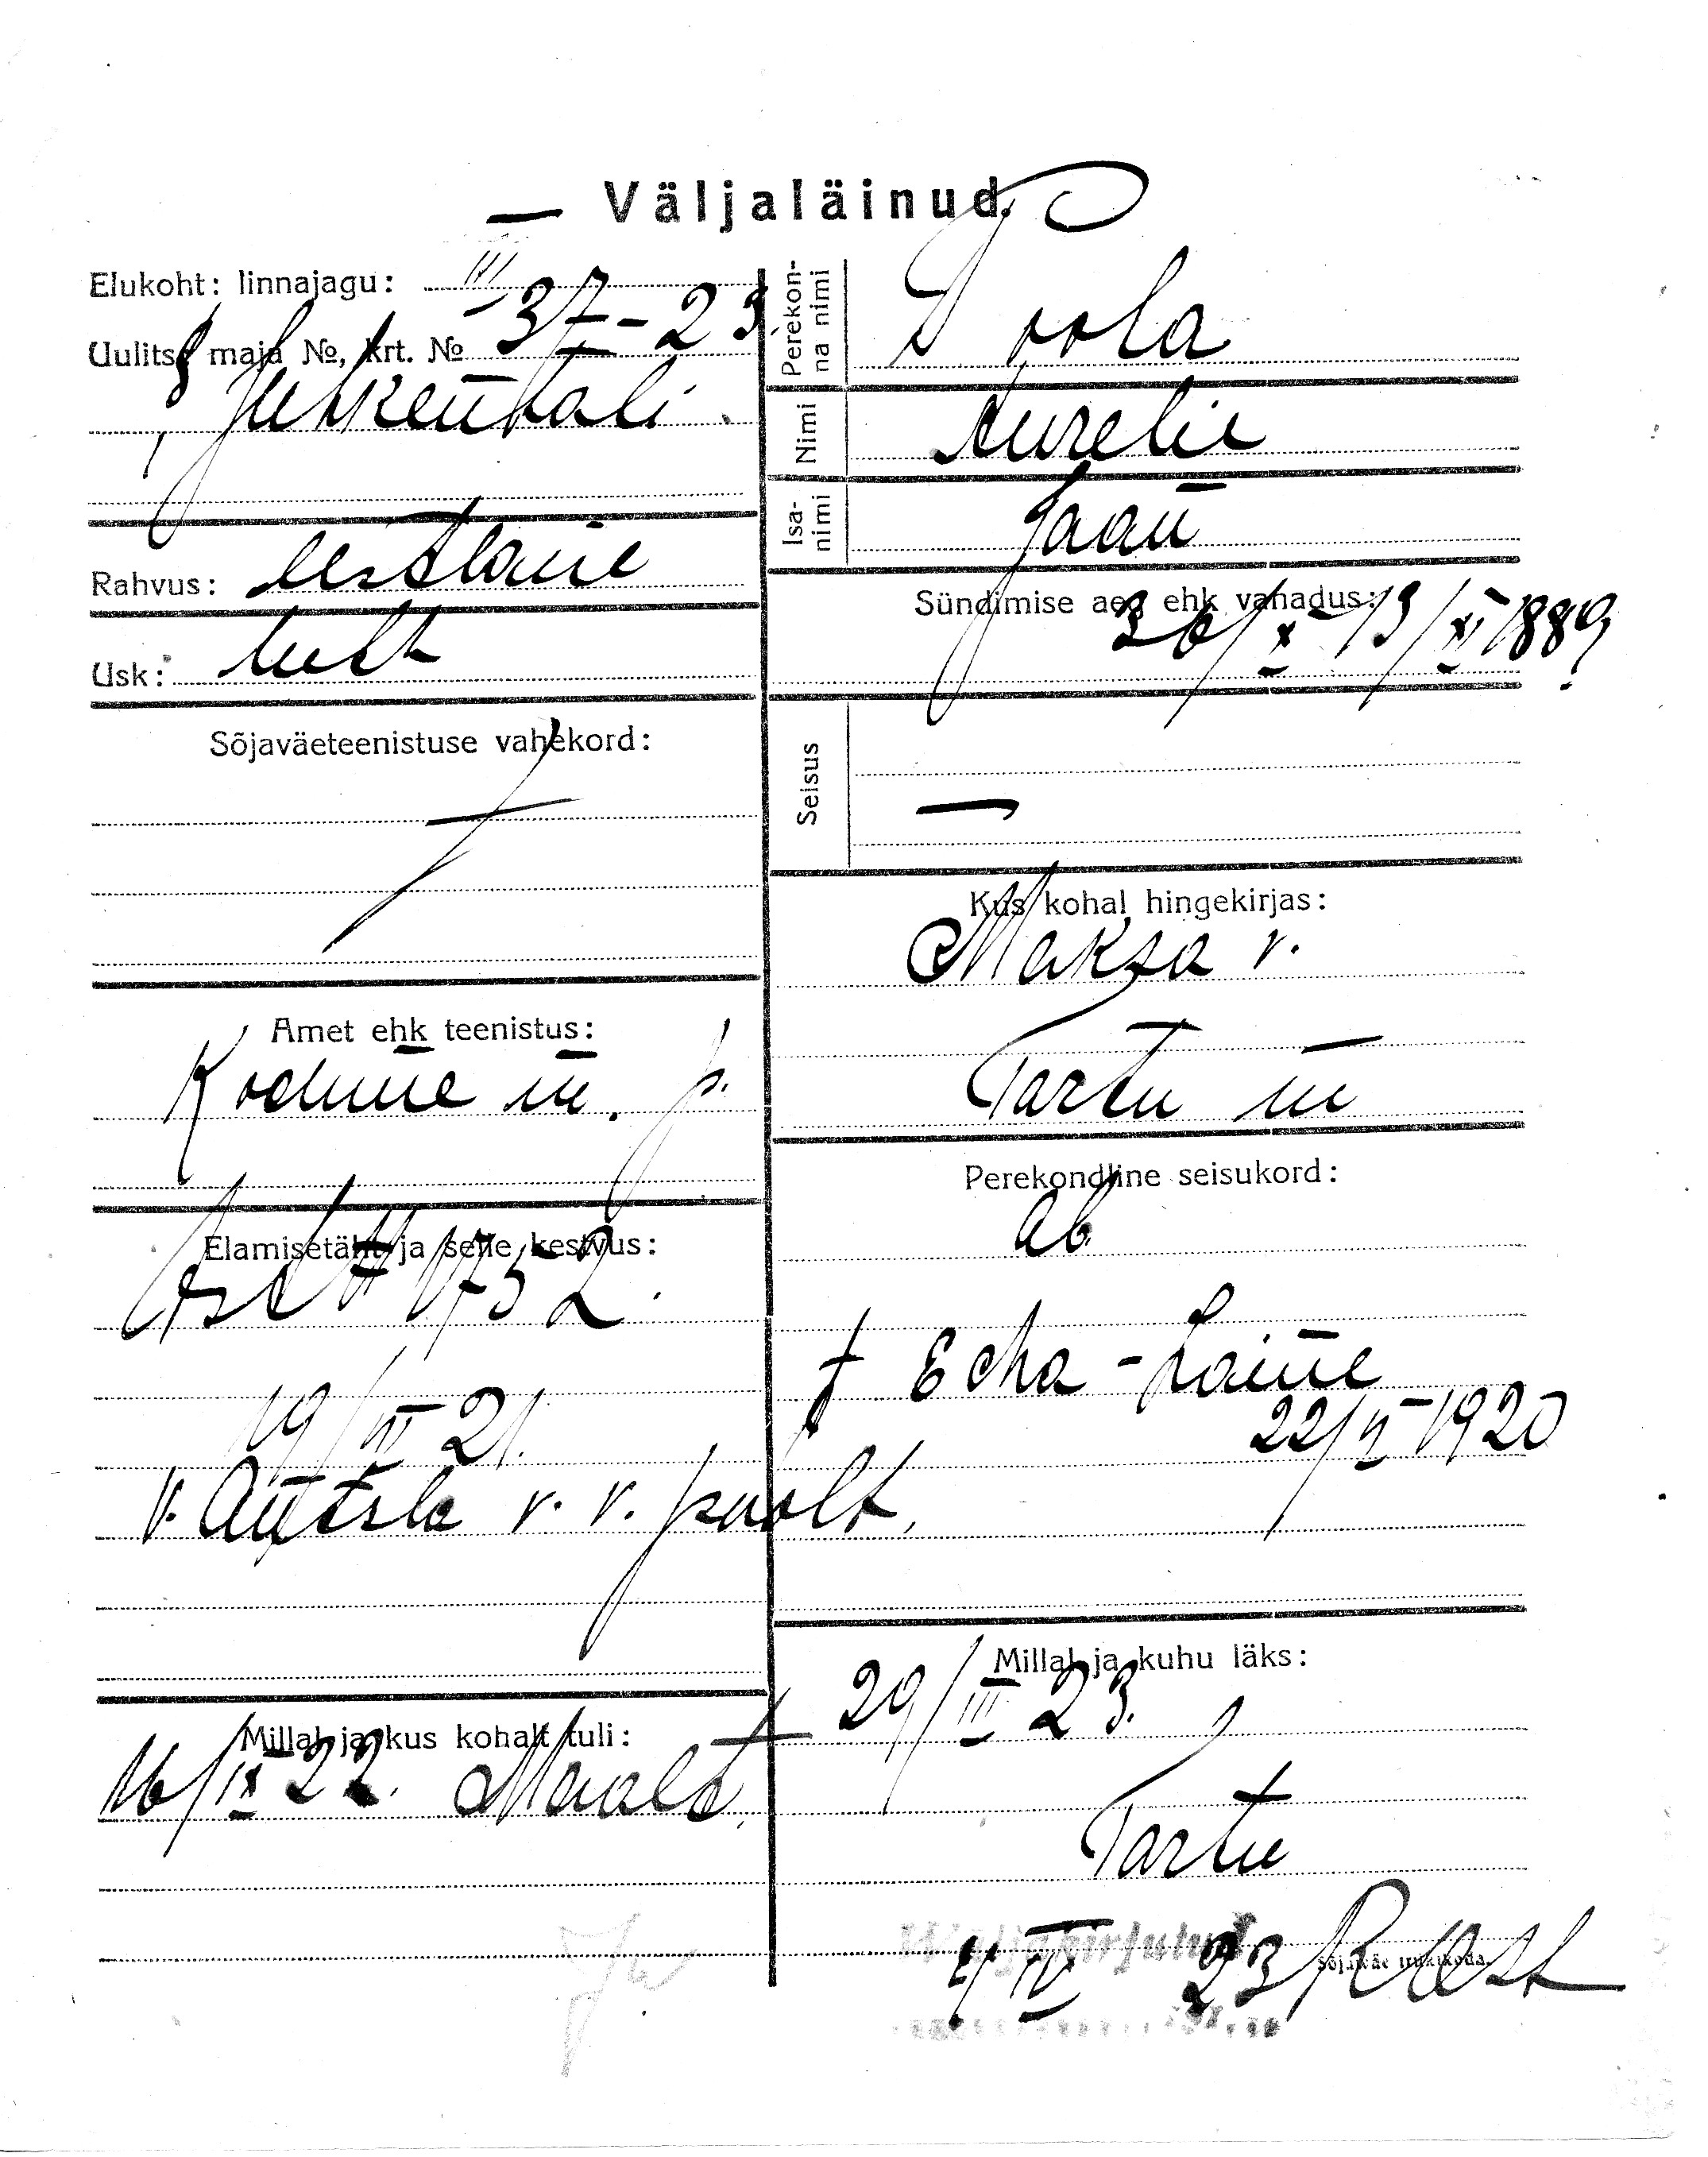 Väljaläinud.
Elukoht: linnajagu: III
Uulits, maja №, krt. № 37-23
Juhkentali
Rahvus: eestlane
Usk: lutt
Sõjaväeteenistuse vahekord:
—
Amet ehk teenistus:
Kodune m. p.
Elamisetäht ja selle kestvus:
1752.
19/VI 21.
v. Antsla v. v. poolt.
Millal ja kus kohalt tuli:
16/IX 22. Maalt
Perekonna nimi
Poola
Nimi
Aurelie
Isanimi
Jaan
Sündimise aeg ehk vanadus:
26/X-13/XI 1889
Seisus
—
Kus kohal hingekirjas:
Meksa v.
Tartu m
Perekondline seisukord:
ab.
t Eha-Laine
1920
Millal ja kuhu läks:
29/III 23.
Tartu
Väljakirjutud
4/IV 23
Sõjaväe trükikoda.